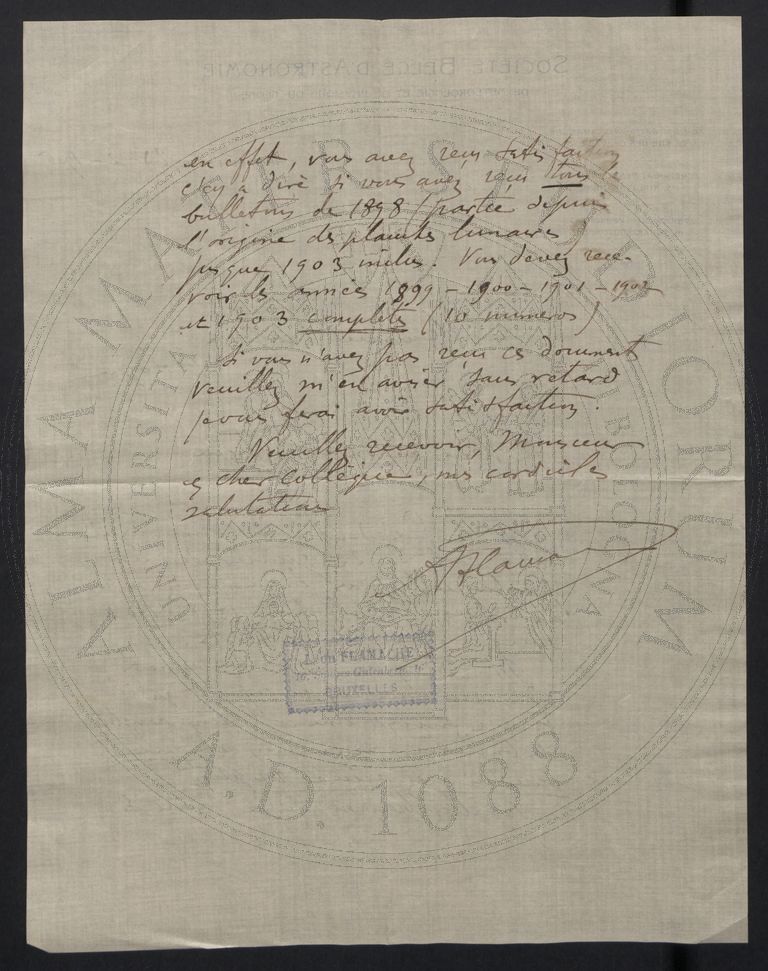 SOCIÉTÉ BELGE D'ASTRONOMIE
en effet, vous avez reçu satisfaction
c'est à dire si vous avez reçu tous les
bulletins de 1898 (partie depuis
l'origine des planches lunaires)
jusque 1903 inclus. Vous devez rece-
voir les années 1899 - 1900 - 1901 - 1902
et 1903 complets (10 numeros)
Si vous n'avez pas reçu ces document
veuillez m'en aviser sans retard
je vous ferai avoir satisfaction.
Veuillez recevoir, Monsieur
& cher Collègue, mes cordiales
salutations
LFlamache
Léon FLAMACHE
BRUXELLES
ALMA MATER STUDIORUM
UNIVERSITÀ DI BOLOGNA
A.D. 1088